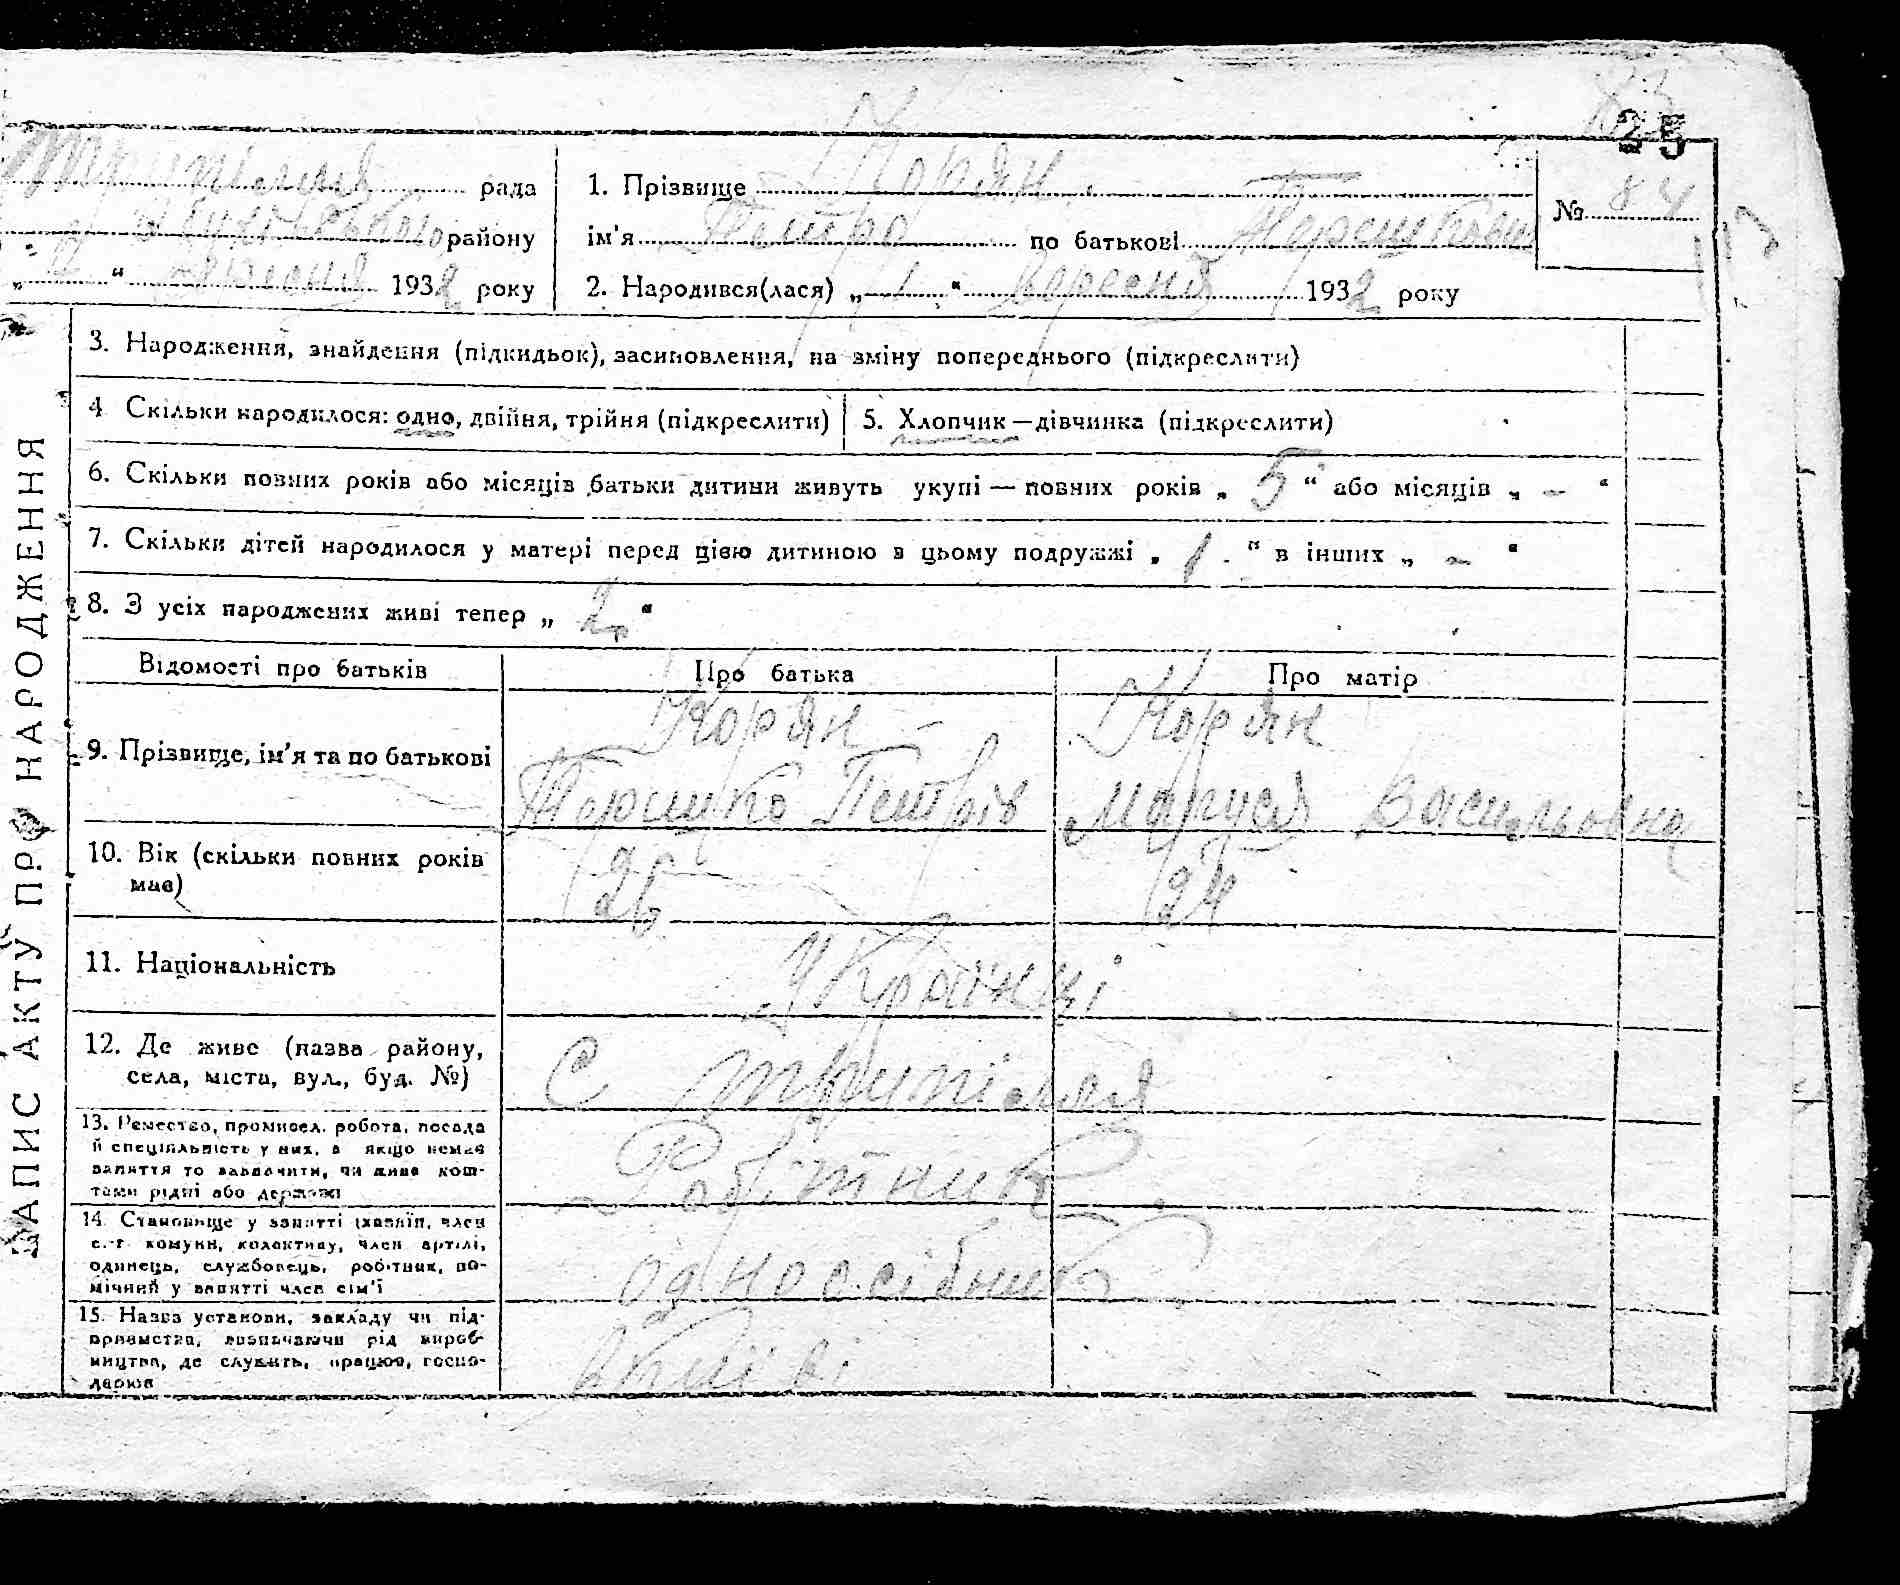 25
Трипілля рада
району
вересня 1932 року
1. Прізвище Корян
ім'я Петро по батькові
2. Народився(лася) „ 1 “ вересня 1932 року
№ 84
ЗАПИС АКТУ ПРО НАРОДЖЕННЯ
3. Народження, знайдення (підкидьок), засиновлення, на зміну попереднього (підкреслити)
4 Скільки народилося: одно, двійня, трійня (підкреслити)
5. Хлопчик — дівчинка (підкреслити)
6. Скільки повних років або місяців батьки дитини живуть укупі — повних років „ 5 “ або місяців „ – “
7. Скільки дітей народилося у матері перед цією дитиною в цьому подружжі „ 1 “ в інших „ – “
8. З усіх народжених живі тепер „ 2 “
Відомості про батьків Про батька Про матір
9. Прізвище, ім'я та по батькові
Корян Петрів
Корян Маруся Васильовна
10. Вік (скільки повних років має) 26 24
11. Національність Українці
12. Де живе (назва району, села, міста, вул., буд. №)
с Трипілля
13. Ремество, промисел, робота, посада
й спеціяльність у них, а якщо немає
заняття то зазначити, чи живе кош-
тами рідні або держави
Робітник
14. Становище у занятті (хазяїн, член
с.-г. комуни, колективу, член артілі,
одинець, службовець, робітник, по-
мічний у занятті член сім'ї
одноосібник
15. Назва установи, закладу чи під-
приємства, визначаючи рід вироб-
ництва, де служить, працює, госпо-
дарює